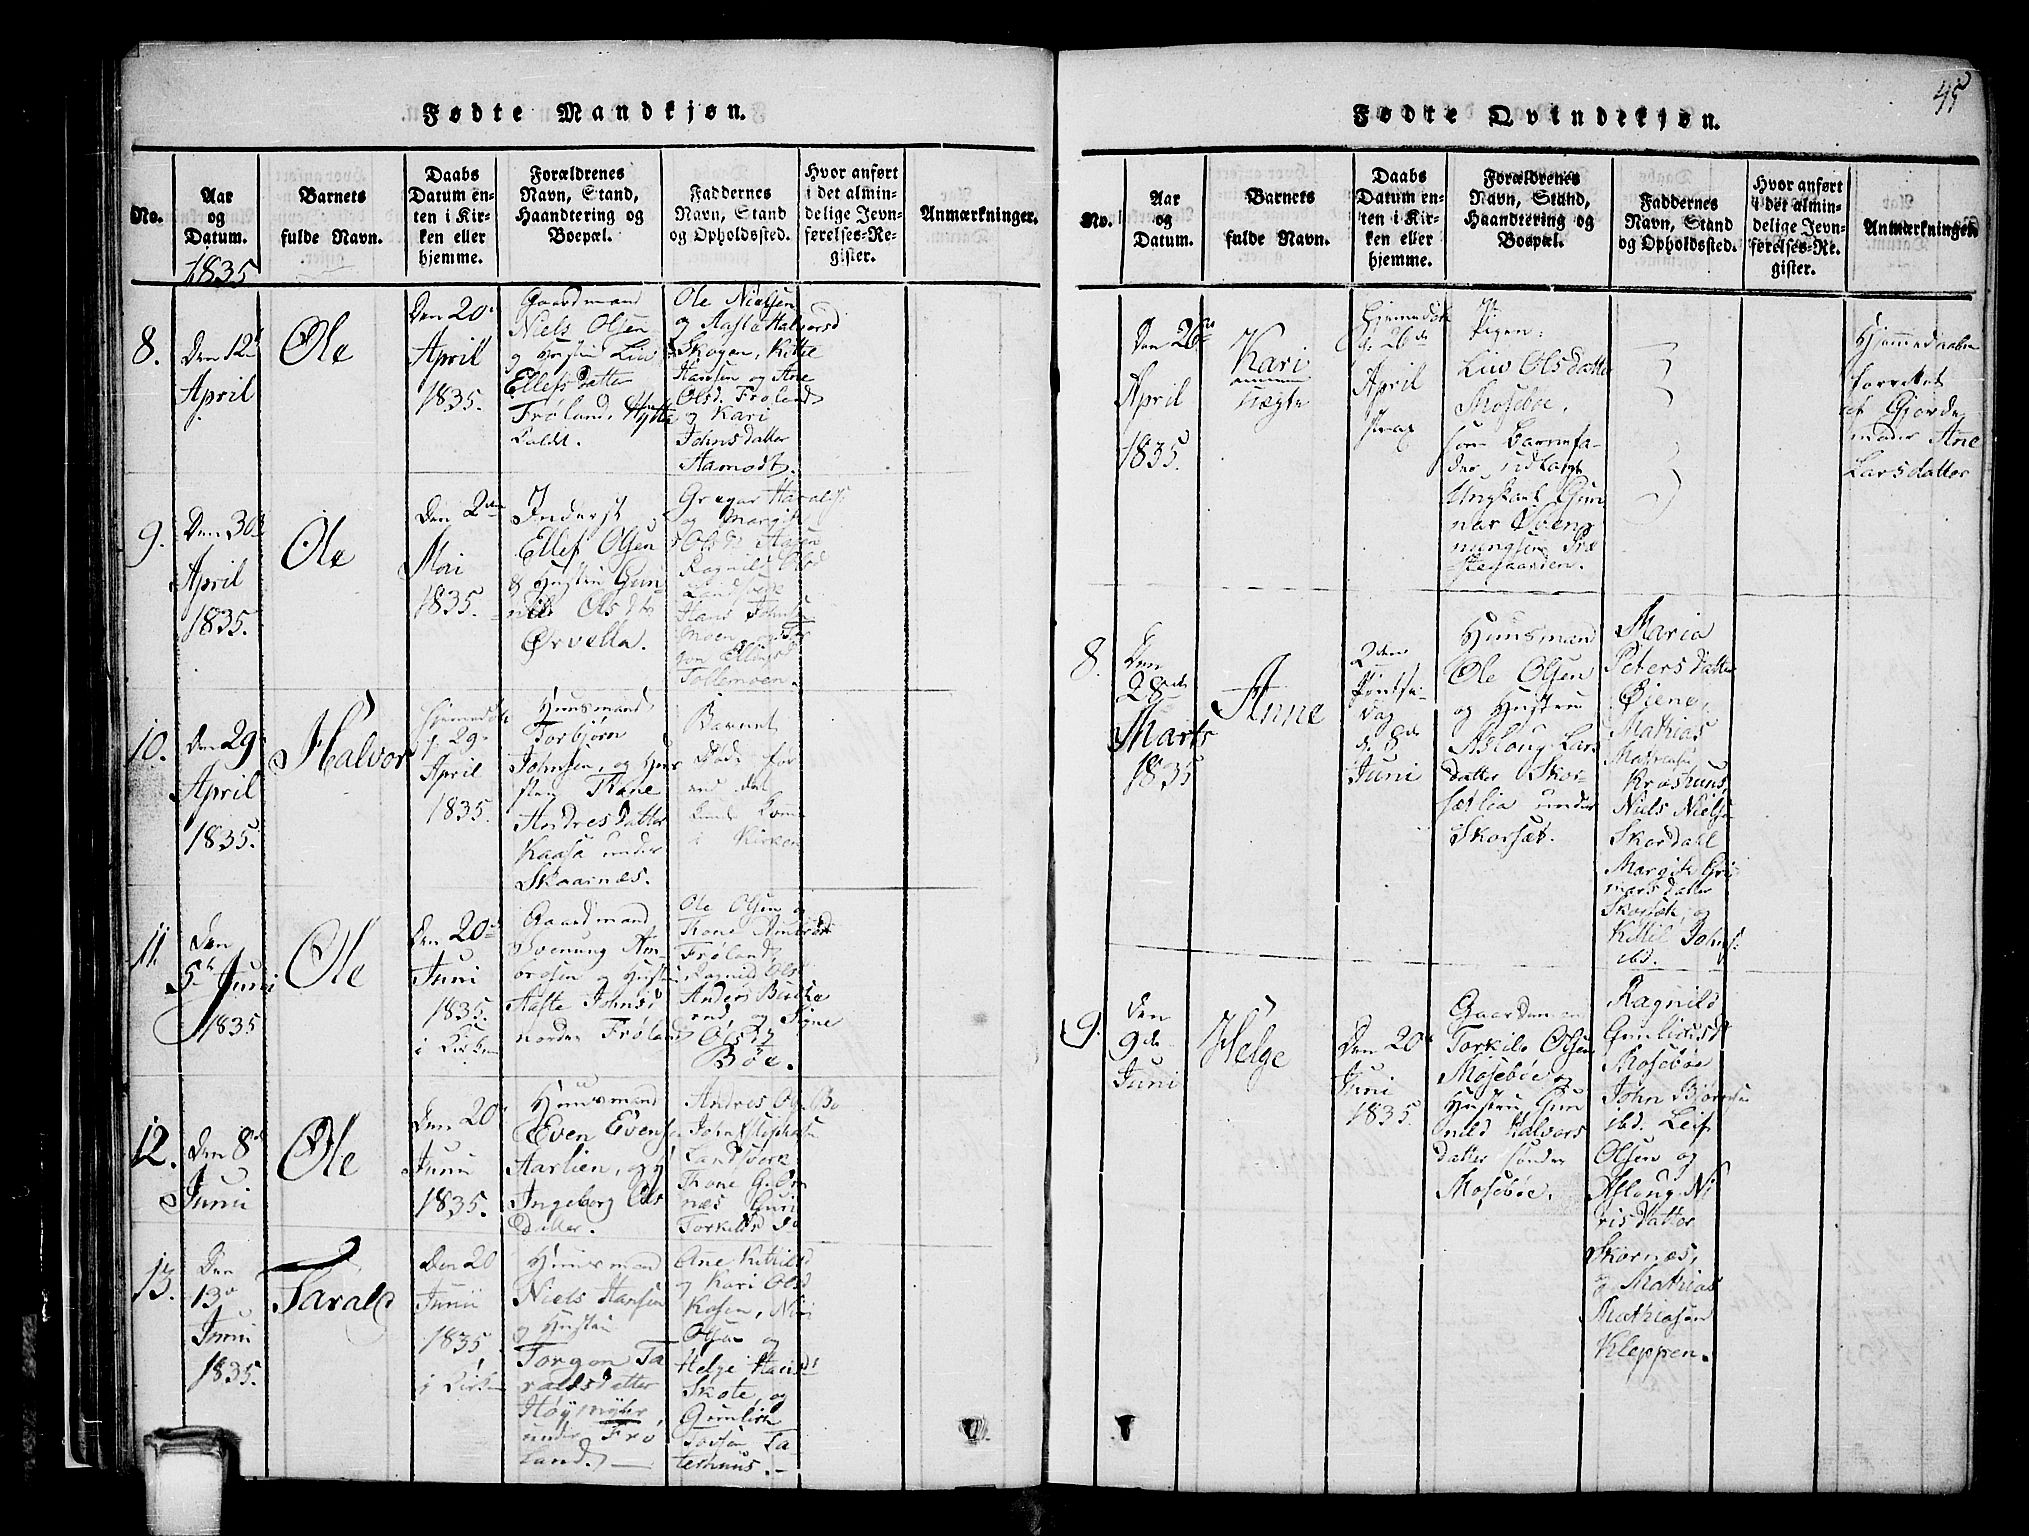 Fødte Mandkjøn.
No.
Aar
og
Datum.
1835
Barnets
fulde Navn.
Daabs
Datum en-
ten i Kir-
ken eller
hjemme.
Forældrenes
Navn, Stand,
Haandtering og
Boepæl.
Faddernes
Navn, Stand
og Opholdssted.
Hvor anført
i det almin-
delige Jevn-
førelses-Re-
gister.
Anmærkninger.
8.
Den 12te
April
Ole
Den 20de
April
1835.
Gaardmand
Niels Olsen
og Hustru Liv
Ellefsdatter
Frøland, Hytte
kaldt.
Ole Nielsen
og Aaste Halvorsd
Skogen, Kittil
Hansen og Ane
Olsd. Frøland
og Kari
Johnsdatter
Aamodt.
9.
Den 30te
April
1835.
Ole
Den 2den
Mai
1835.
Inderst
Ellef Olsen
& Hustru Gun
nild Olsdtr
Ørvella.
Gregar Haralds:
og Margit
Olsdr
Ragnild Olsd
Landsverk
Hans Johns:
Moen, og Tor
gon Ellingsd
Tollemoen.
10.
Den 29de
April
1835.
Halvor
Hjemmedøbt
d. 29de
April
1835.
Huusmand
Torbjørn
Johnsen, og Hus
tru Thone
Andresdatter
Kaasa under
Skaarnæs.
Barnet
døde før
end det
kunde komme
i Kirken
11.
Den
5te Juni
1835
Ole
Den 20de
Juni
1835.
i Kirken
Gaardmand
Svenung An-
dresen og Hustru
Aaste Johnsd
nordre Frøland
Ole Olsen og
Thone Andersdtr
Frøland,
Ragnild Olsd
Anders
og Signe
Olsdtr
Bøe.
12.
Den 8de
Juni
Ole
Den 20de
Juni
1835.
Huusmand
Even Evensen
Aarlien, og
Ingeborg Ols
datter.
Andres
John
Landsverk
Thone
næs Guri
Torkilds do
13.
Den
13de
Juni
1835.
Tarald
Den 20
Junii
1835.
i Kirken
Huusmand
Niels Hansen
og Hustru
Torgon Ta
raldsdatter
Høymyhr,
under Frø
land.
Ane Kittilsd
og Kari Olsd
Kosen,
Olsen og
Helge Hansd:
Skote, og
Gunlech
Tovsen Ta-
temuus.
Fødte Qvindekjøn.
45
No.
Aar
og
Datum.
Barnets
fulde Navn.
Daabs
Datum en-
ten i Kir-
ken eller
hjemme.
Forældrenes
Navn, Stand,
Haandtering og
Boepæl.
Faddernes
Navn, Stand
og Opholdssted.
Hvor anført
i det almin-
delige Jevn-
førelses-Re-
gister.
Anmærkninger
Den 26de
April
1835.
Kari
uægte
Hjemmedøbt
d. 26de
April
strax
Pigen
Liv Olsdatter
Mosebøe,
som Barnefa-
der udlagt
Ungkarl Gun
nar Svenn
ningsen Præ
stegaarden.
Hjemmedaaben
forrettet
af Gjorde
moder Ane
Larsdatter
8.
Den
28de
Marts
1835
Anne
2den
Pintse-
dag
d. 8de
Juni
Huusmand
Ole Olsen
og Hustru
Asloug Lars
datter Skor-
sætlia under
Skorsæt.
Maria
Petersdatter
Øiene,
Mathias
Mathiesen
Krashuus,
Niels Nielsen
Skordahl
Margith Gun
narsdatter
Skorsæt, og
Kittil Johns:
ibd.
9.
Den
9de
Juni
Helge
Den 20de
Juni
1835.
Gaardmand
Torkild Olsen
Mosebøe og
Hustru Gun
nild Halvors
datter søndre
Mosebøe.
Ragnild
Gunleiksd
Mosebøe
John Bjørnsen
ibd. Leif
Olsen og
Asloug Ni
risdatter
Skornæs,
og Mathias
Mathiasen
Kleppen.